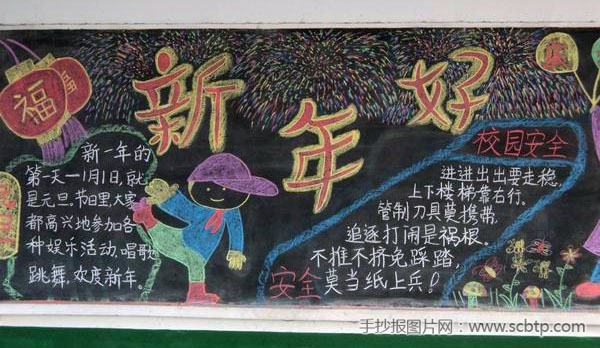 福
新年好
新一年的
第一天一1月1日,就
是元旦.节日里大家
都高兴地参加各
种娱乐活动.唱歌
跳舞,欢度新年.
校园安全
进进出出要走稳,
上下楼梯靠右行。
管制刀具莫携带,
追逐打闹是祸根。
不推不挤免踩踏,
莫当纸上兵!
安全
手抄报图片网:www.scbtp.com